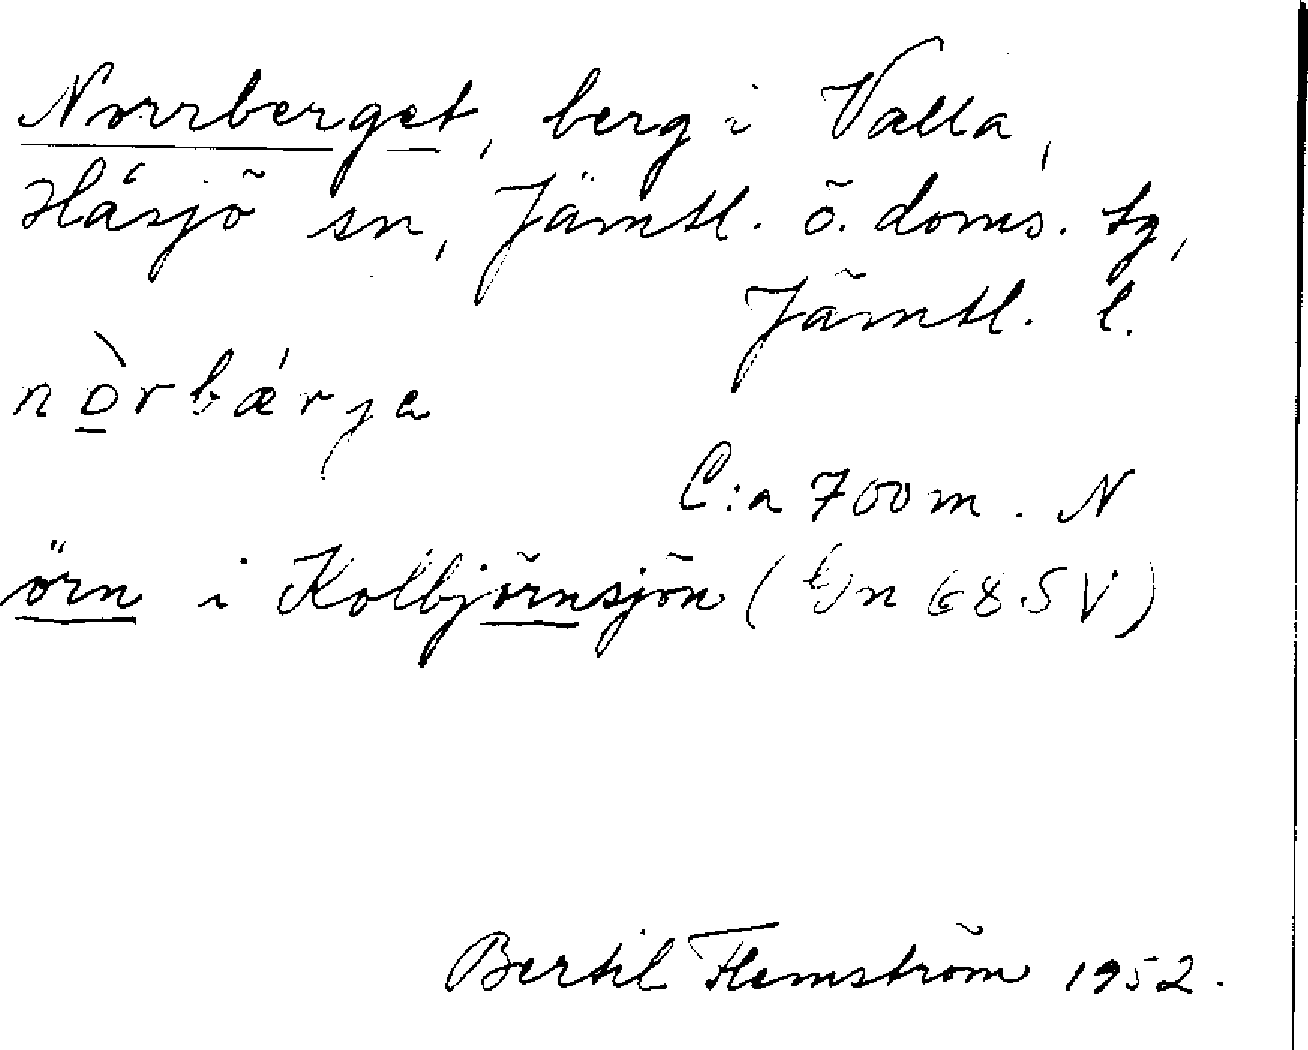 Norrberget, berg i Valla,
Håsjö sn, Jämtl. ö. doms. tg,
Jämtl. l.
nòrbǽrjɐ
C:a 700 m. N
örn i Kolbjörnsjön ( 68 SV)
Bertil Flemström 1952.